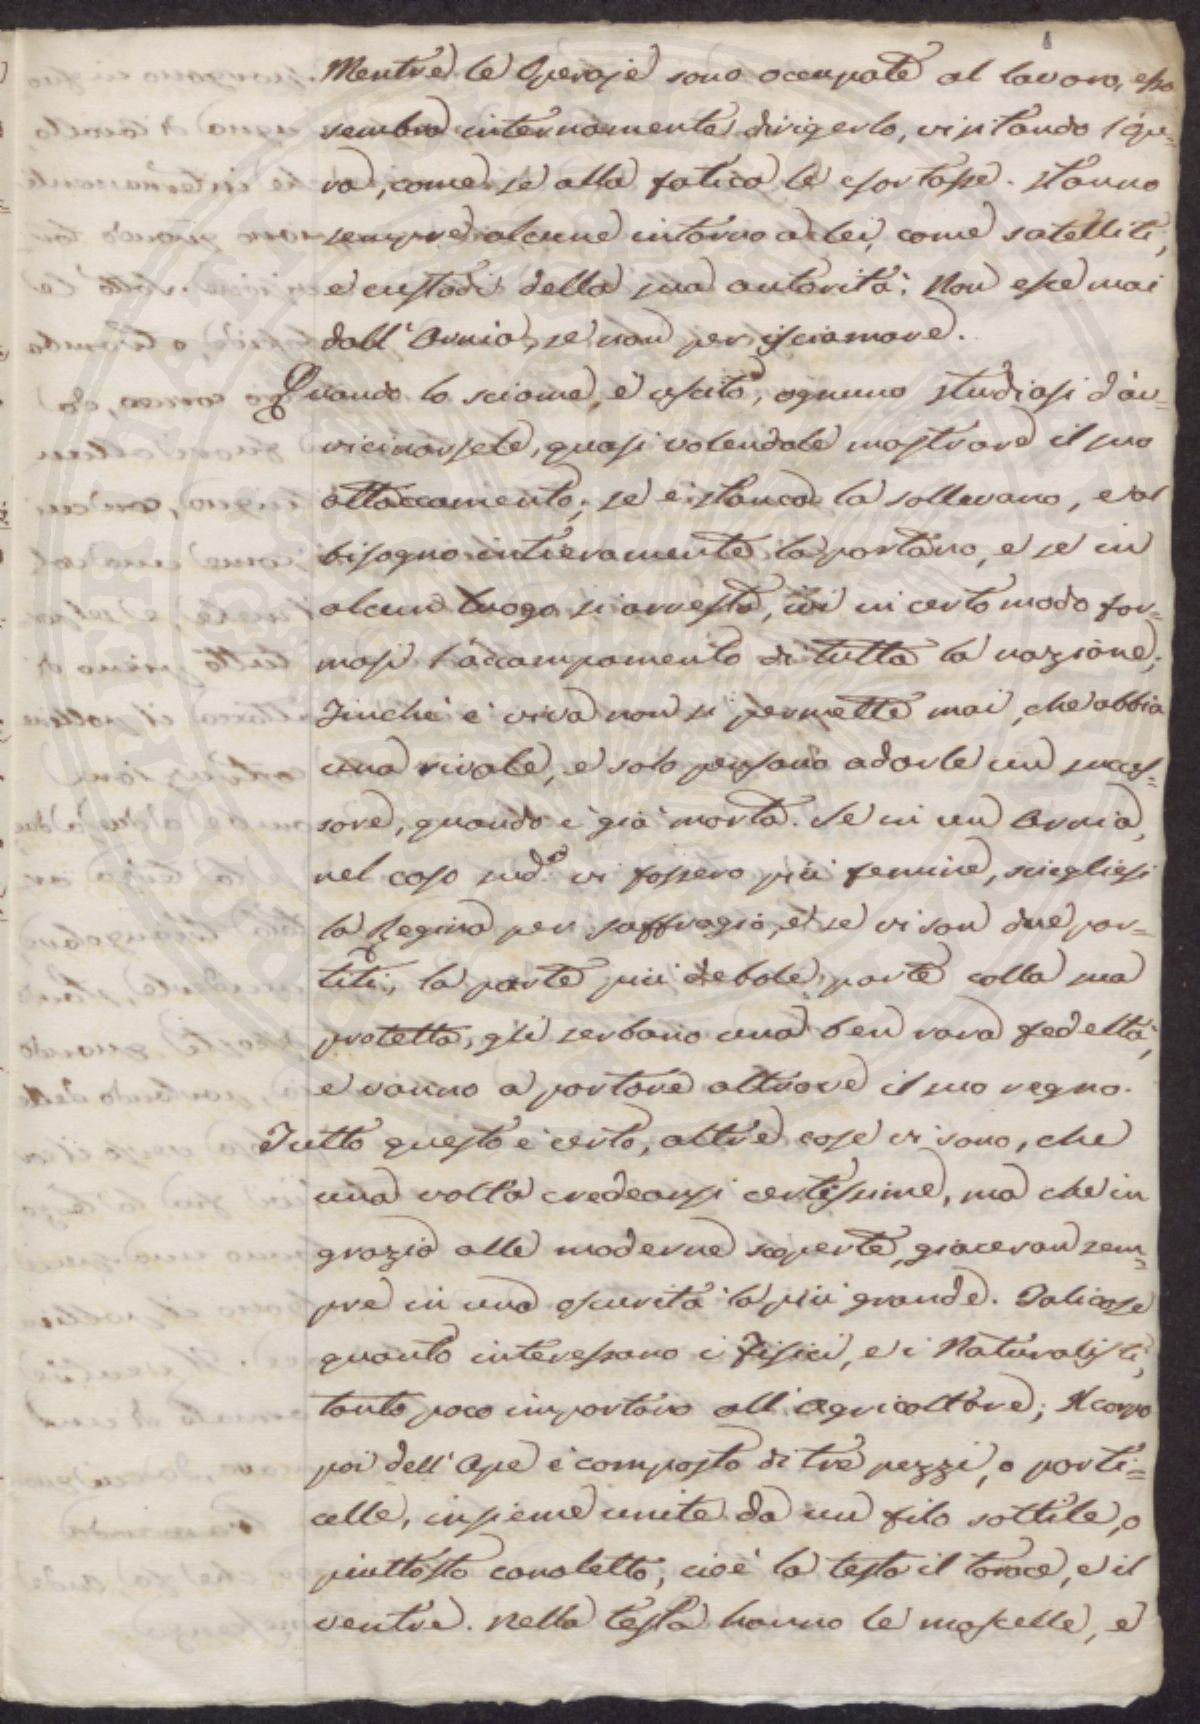 Mentre le Operaje sono occupate al lavoro, essa
sembra internamente dirigerlo, visitando l'ope=
ra, come se alla fatica le esortasse. Stanno
sempre alcune intorno a lei, come satelliti,
e custodi della sua autorità; Non esce mai
dall'Arnia, se non per isciamare.
Quando lo sciame è uscito, ognuno studiasi d'av=
vicinarsele, quasi volendole mostrare il suo
attaccamento; se è stanca la sollevano, e al
bisogno intieramente la portano, e se in
alcun luogo si arresta, ivi in certo modo for=
masi l'accampamento di tutta la nazione;
Finché è viva non si permette mai, che abbia
una rivale, e solo pensano a darle un succes=
sore, quando è già morta. Se in un Arnia,
nel caso sud.º vi fossero più femine, sciegliesi
la Regina per suffragio, e se vi son due par=
titi, la parte più debole parte colla sua
protetta, gli serbano una ben rara fedeltà,
e vanno a portare altrove il suo regno.
Tutto questo è certo, altre cose vi sono, che
una volta credeansi certissime, ma che in
grazia alle moderne scoperte, giaceran sem=
pre in una oscurità la più grande. Tali cose
quanto interessano i Fisici, e i Naturalisti,
tanto poco importano all'Agricoltore; Il corpo
poi dell'Ape è composto di tre pezzi, o parti=
celle, insieme unite da un filo sottile, o
piuttosto canaletto, cioè la testa il torace, e il
ventre. Nella testa hanno le mascelle, e